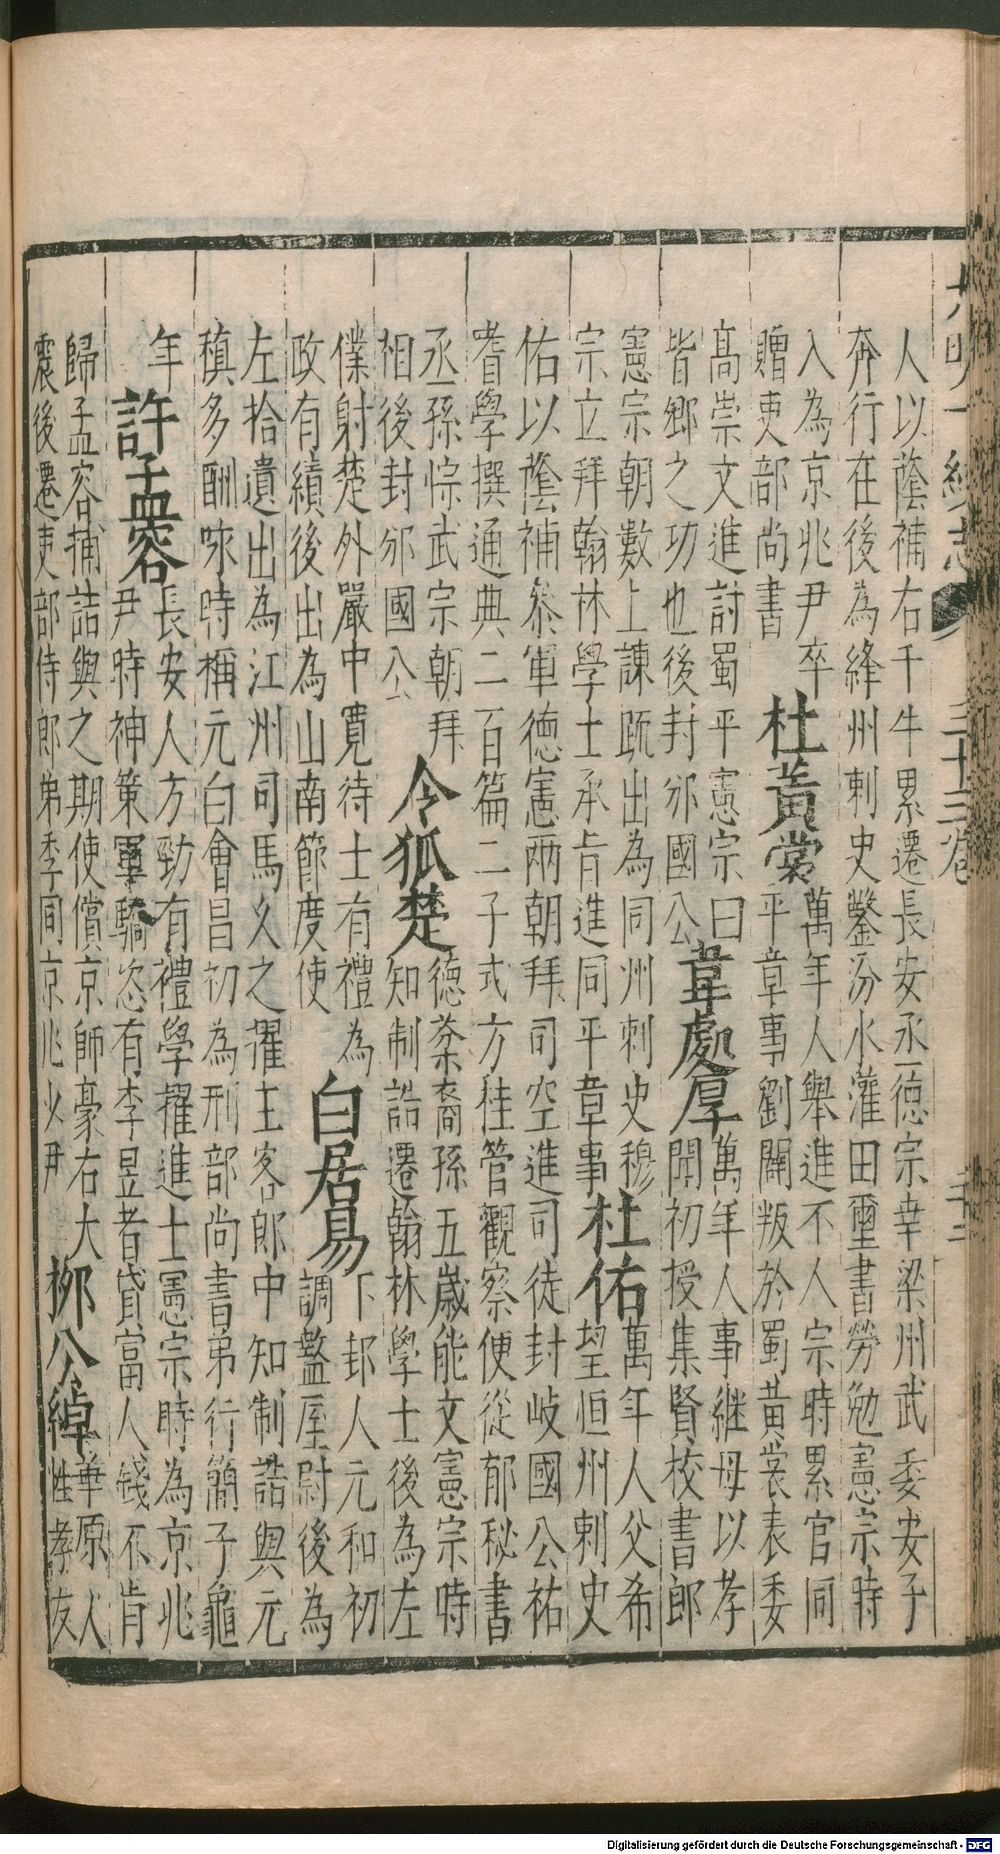 大明一統志 三十三卷 三十二
人以蔭補右千牛累遷長安丞德宗幸梁州武委妻子
奔行在後為絳州刺史鑿汾水灌田璽書勞勉憲宗時
入為京兆尹卒
贈吏部尚書
杜黃裳
萬年人舉進不人宗時累官同
平章事劉闢叛於蜀黃裳表委
高崇文進討蜀平憲宗曰
皆鄉之功也後封邠國公
韋處厚
萬年人事継母以孝
聞初授集賢校書郎
憲宗朝數上諫䟽出為同州刺史穆
宗立拜翰林學士承旨進同平章事
杜佑
萬年人父希
望恒州刺史
佑以蔭補叅軍德憲兩朝拜司空進司徒封岐國公祐
耆學撰通典二百篇二子式方桂管觀察使從郁秘書
丞孫悰武宗朝拜
相後封邠國公
令狐楚
德棻裔孫五歲能文憲宗時
知制誥遷翰林學士後為左
僕射楚外嚴中寬待士有禮為
政有績後出為山南節度使
白居易
下邽人元和初
調盩厔尉後為
左拾遺出為江州司馬乆之擢主客郎中知制誥與元
稹多酬咏時稱元白會昌初為刑部尚書弟行簡子龜
年
許孟容
長安人方勁有禮學擢進士憲宗時為京兆
尹時神策軍驕恣有李昱者貸富人錢不肯
歸孟容捕詰與之期使償京師豪右大
震後遷吏部侍郎弟季同京兆少尹
柳公綽
華原人
性孝友
Digitalisierung gefördert durch die Deutsche Forschungsgemeinschaft - DFG